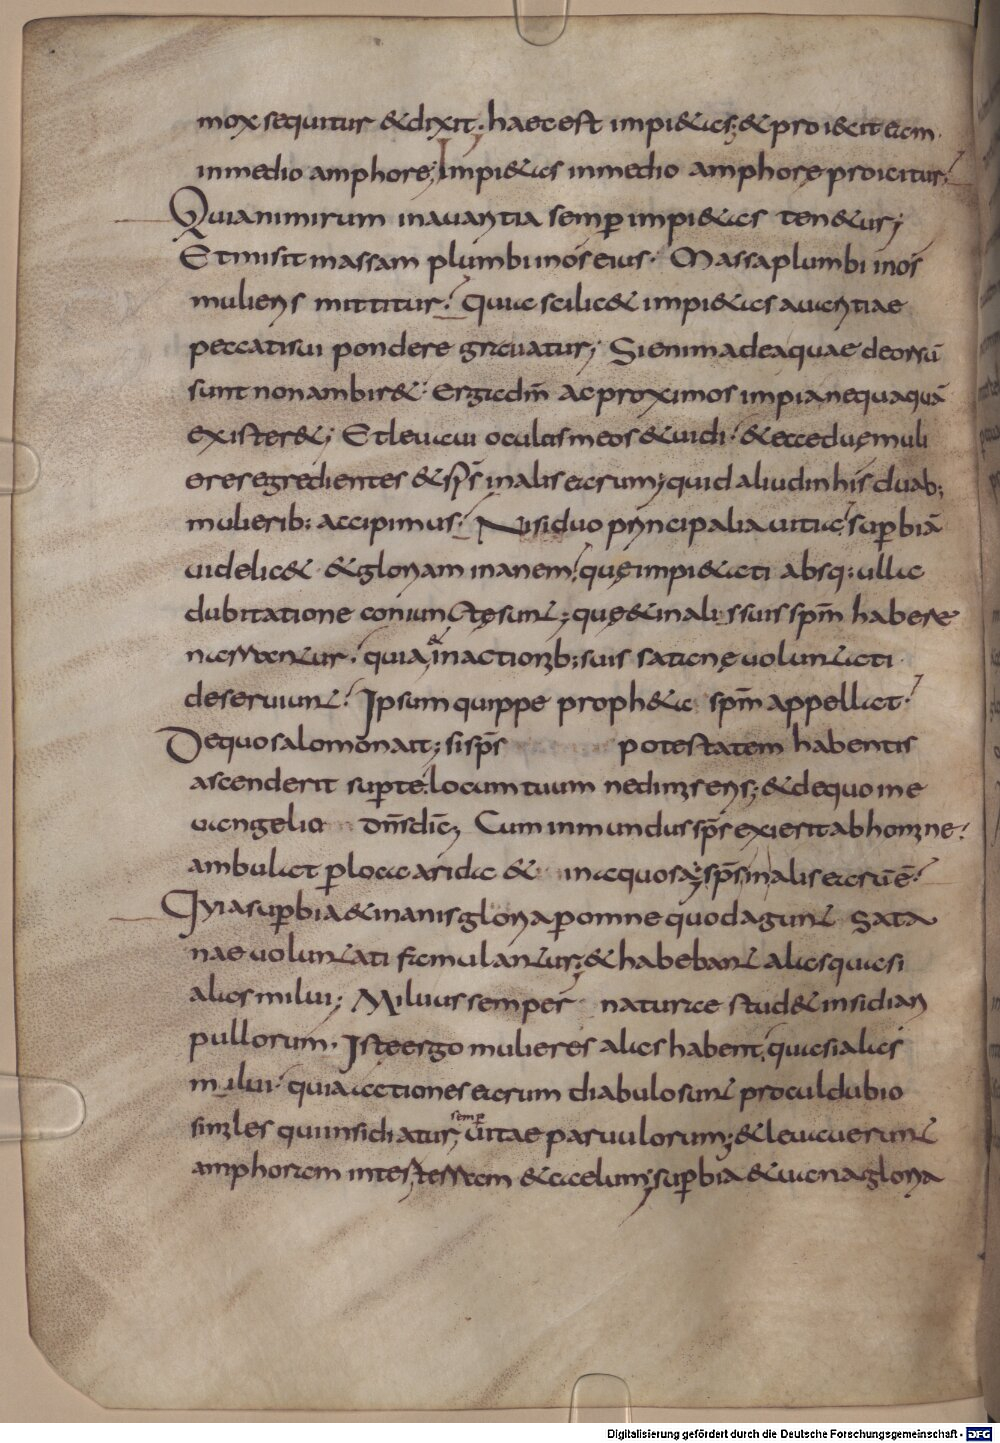 mox sequitur & dixit. haec est impi&as; & proiecit eam.
in medio amphore; Impi&as in medio amphorę proicitur;
Quia nimirum in avaritia semp impi&as ten&ur;
Et misit massam plumbi in os eius. Massa plumbi in os
mulieris mittitur? Quia scilic& impi&as avaritiae
peccati sui pondere gravatur; Si enim ad ea quae deorsū
sunt non ambir&. Erga dm̄ ac proximos impia nequaquā
exister&; Et levavi oculos meos & vidi. & ecce duę muli
eres egredientes & sp̄s in alis earum; quid aliud in his duab;
mulierib; accipimus? Nisi duo principalia vitia? supbiā
videlic& & gloriam inanem? quę impi&ati absq; ulla
dubitatione coniunctę sunt; quę & in alis suis spm̄ habere
narrantur. quia in actionib; suis satanę voluntati
deserviunt? Ipsum quippe proph&a spm̄ appellat?
De quo salomon ait; si sp̄s potestatem habentis
ascenderit sup te. locum tuum ne dimiseris; & de quo in e
vangelio dn̄s dic̄; Cum inmundus sp̄s exierit ab homine?
ambulat p loca arida & inaquosa; sp̄s in alis earū ē?
Quia supbia & inanis gloria p omne quod agunt sata
nae voluntati famulantur; & habebant alas quasi
alas milui; Miluus semper naturae stud& insidiari
pullorum. Iste ergo mulieres alas habent. quasi alas
milui. quia actiones earum diabulo sunt procul dubio
similes qui insidiatur semp vitae parvulorum; & levaverunt
amphoram inter terram & caelum; supbia & vana gloria
Digitalisierung gefördert durch die Deutsche Forschungsgemeinschaft - DFG